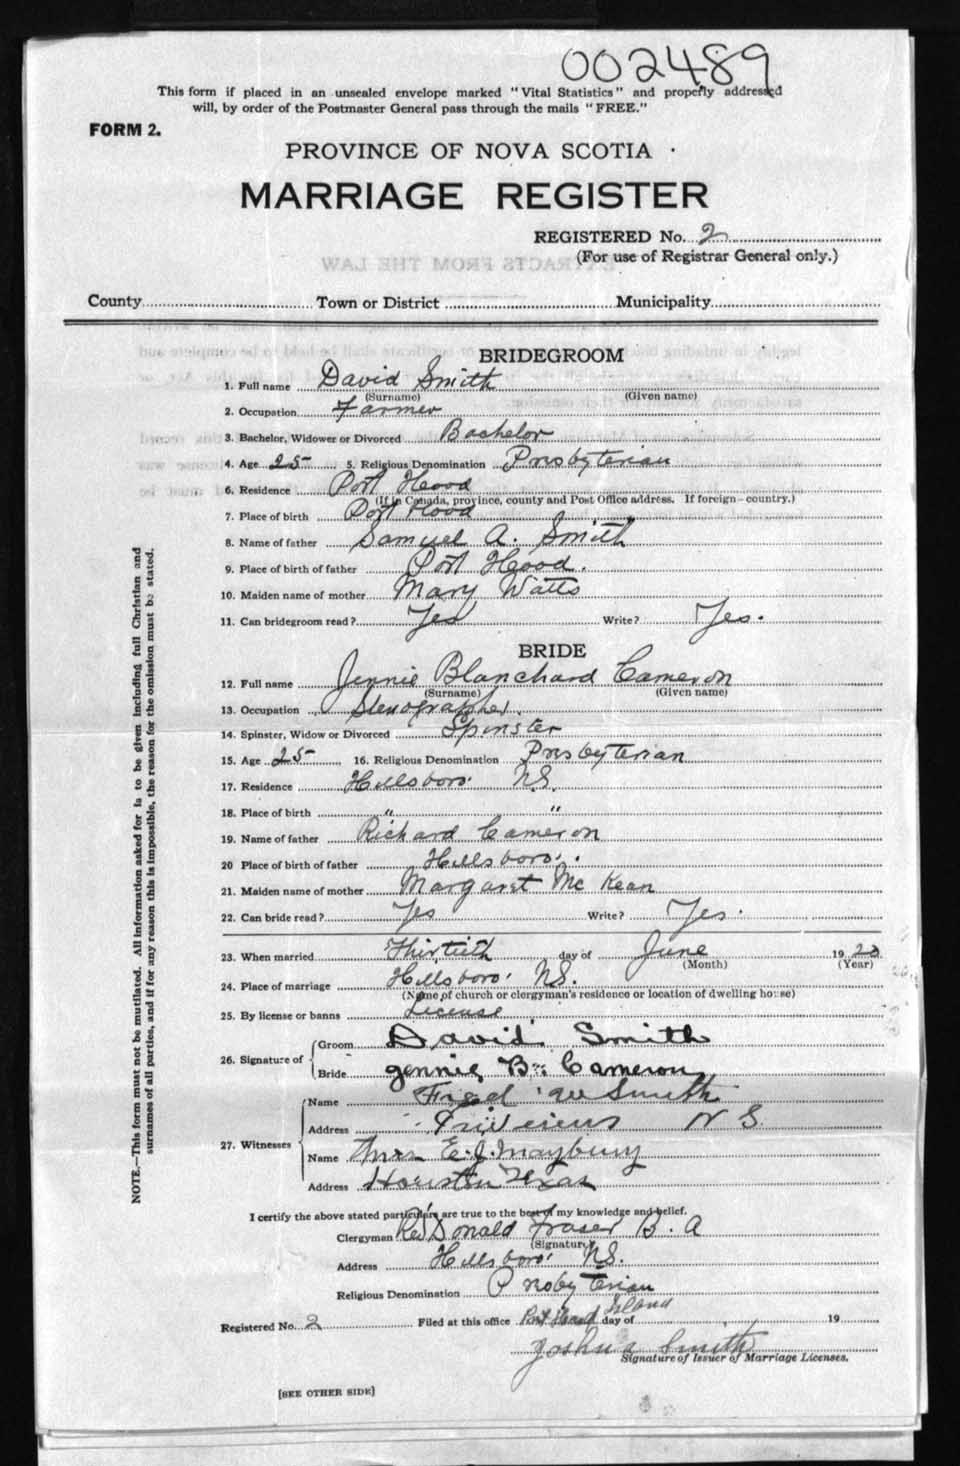 002489
This form if placed in an unsealed envelope marked "Vital Statistics" and properly addressed
will, by order of the Postmaster General pass through the mails "FREE."
FORM 2.
PROVINCE OF NOVA SCOTIA
MARRIAGE REGISTER
REGISTERED No. 2
(For use of Registrar General only.)
EXTRACTS FROM THE LAW
County Town or District Municipality
BRIDEGROOM
1. Full name David Smith
(Surname) (Given name)
2. Occupation Farmer
3. Bachelor, Widower or Divorced Bachelor
4. Age 25 5. Religious Denomination Presbyterian
6. Residence Port Hood
(If in Canada, province, county and Post Office address. If foreign—country.)
7. Place of birth Port Hood
8. Name of father Samuel A. Smith
9. Place of birth of father Port Hood.
10. Maiden name of mother Mary Watts
11. Can bridegroom read? Yes Write? Yes.
BRIDE
12. Full name Jennie Blanchard Cameron
(Surname) (Given name)
13. Occupation Stenographer
14. Spinster, Widow or Divorced Spinster
15. Age 25 16. Religious Denomination Presbyterian
17. Residence Hillsboro' N.S.
18. Place of birth " "
19. Name of father Richard Cameron
20 Place of birth of father Hillsboro'.
21. Maiden name of mother Margaret McKean
22. Can bride read? Yes Write? Yes.
23. When married Thirtieth day of June 1923
(Month) (Year)
24. Place of marriage Hillsboro' N.S.
(Name of church or clergyman's residence or location of dwelling house)
25. By license or banns License
26. Signature of Groom David Smith
Bride Jennie B. Cameron
27. Witnesses
Name Smith
Address N S.
Name Mrs E. J. Maybury
Address Houston Texas
I certify the above stated particulars are true to the best of my knowledge and belief.
Clergyman Rev Donald Fraser B. A
(Signature)
Address Hillsboro' N.S.
Religious Denomination Presbyterian
Registered No. 2 Filed at this office Port Hood Island day of 19
Joshua Smith
Signature of Issuer of Marriage Licenses.
[SEE OTHER SIDE]
NOTE.—This form must not be mutilated. All information asked for is to be given including full Christian and
surnames of all parties, and if for any reason this is impossible, the reason for the omission must be stated.